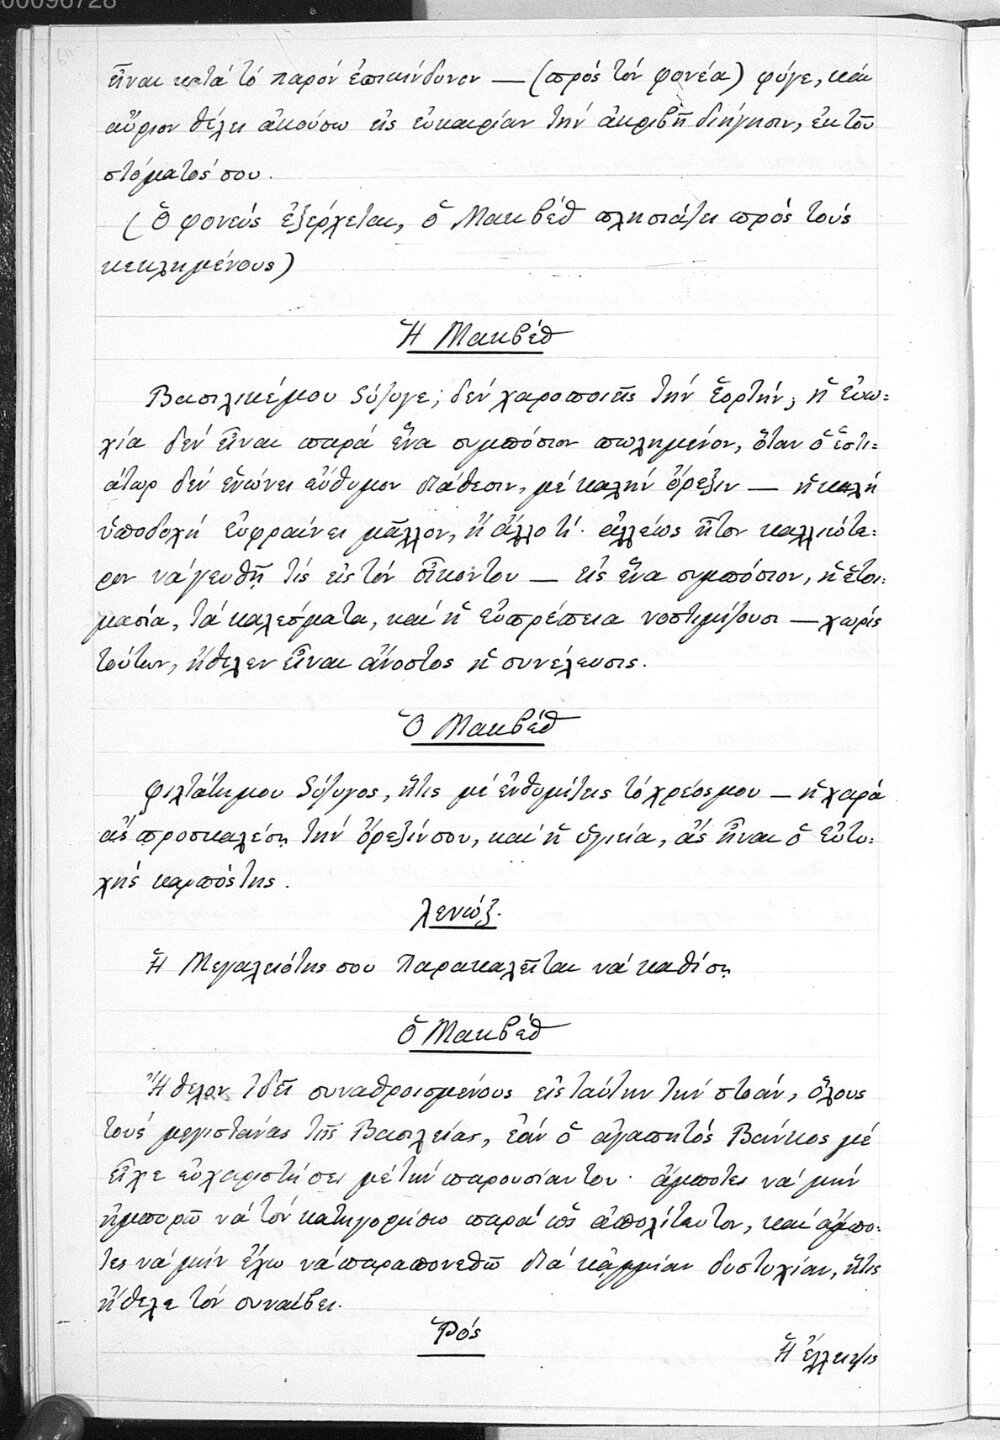 00096728
εἶναι κατὰ τὸ παρὸν ἐπικίνδυνον — (πρὸς τὸν φονέα) φύγε, καὶ
αὔριον θέλει ἀκούσω εἰς εὐκαιρίαν τὴν ἀκριβῆ διήγησιν, ἐκ τοῦ
στόματός σου.
(Ὁ φονεὺς ἐξέρχεται, ὁ Μακβὲθ πλησιάζει πρὸς τοὺς
κεκλημένους)
Ἡ Μακβὲθ
Βασιλικέ μου Σύζυγε, δὲν χαροποιεῖς τὴν ἑορτήν; ἡ εὐω-
χία δὲν εἶναι παρὰ ἕνα συμπόσιον πωλημένον, ὅταν ὁ ἑστι-
άτωρ δὲν ἑνώνει εὔθυμον διάθεσιν, μὲ καλὴν ὄρεξιν — ἡ καλὴ
ὑποδοχὴ εὐφραίνει μᾶλλον, ἢ ἄλλο τί· ἀλλέως ἦτον καλλιότε-
ρον νὰ γευθῇ τὶς εἰς τὸν οἶκόν του — εἰς ἕνα συμπόσιον, ἡ ἑτοι-
μασία, τὰ καλέσματα, καὶ ἡ εὐπρέπεια νοστιμίζουσι — χωρὶς
τούτων, ἤθελεν εἶναι ἄνοστος ἡ συνέλευσις.
Ὁ Μακβὲθ
Φιλτάτη μου Σύζυγος, ἥτις μὲ ἐνθυμίζεις τὸ χρέος μου — ἡ χαρὰ
ἂς προσκαλέσῃ τὴν ὄρεξίν σου, καὶ ἡ ὑγιεία, ἂς ἦναι ὁ εὐτυ-
χὴς καρπός της.
Λενώξ.
Ἡ Μεγαλειότης σου παρακαλεῖται νὰ καθίσῃ
Ὁ Μακβὲθ
Ἤθελον ἰδεῖ συναθροισμένους εἰς ταύτην τὴν στοάν, ὅλους
τοὺς μεγιστάνας τῆς Βασιλείας, ἐὰν ὁ ἀγαπητὸς Βάνκος μὲ
εἶχε εὐχαριστήσει μὲ τὴν παρουσίαν του· ἄμποτες νὰ μὴν
ἠμπορῶ νὰ τὸν κατηγορήσω παρὰ ὡς ἀπολίτευτον, καὶ ἄμπο-
τες νὰ μὴν ἔχω νὰ παραπονεθῶ διὰ κᾀμμίαν δυστυχίαν, ἥτις
ἤθελε τὸν συναίβει.
Ῥός
Ἡ ἔλλειψις